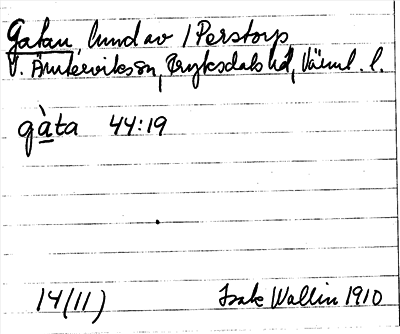 Gatan, lund av 1 Perstorp
V. Ämterviks sn, Fryksdals hd, Värml. l.
gàta 44:19
14(11) Isak Wallin 1910